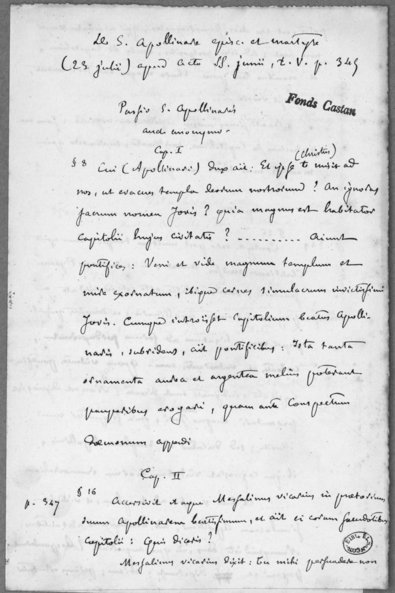 De S. Apollinare episc. et martyre
(23 julii) apud Acta SS. junii, t. V. p. 345
Fonds Castan
Passio S. Apollinaris
auct. anonymo.
Cap. I
(Christus)
§ 8 Cui (Apollinari) Dux ait. Et ipse te misit ad
nos, ut evacues templa deorum nostrorum ? An ignoras
sacrum nomen Jovis ? quia magnus est habitator
capitolii hujus civitatis ? .......... Aiunt
pontifices : Veni et vide magnum templum et
mire exornatum, ibique cernes simulacrum invictissimi
Jovis. Cumque introisset Capitolium beatus Apolli-
naris, subridens, ait pontificibus : Ista tanta
ornamenta aurea et argentea melius poterant
pauperibus erogari, quam ante conspectum
dæmonum appendi
Cap. II
p. 347 § 16 Accersivit itaque Messalinus vicarius in prætorium
suum Apollinarem beatissimum, et ait ei coram sacerdotibus
capitolii : Quis diceris ?
Messalinus vicarius dixit : tu mihi persuadere non